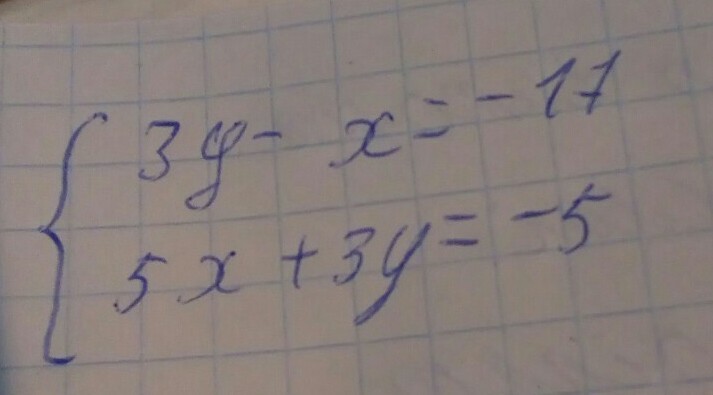 3y - x = -17
5x + 3y = -5